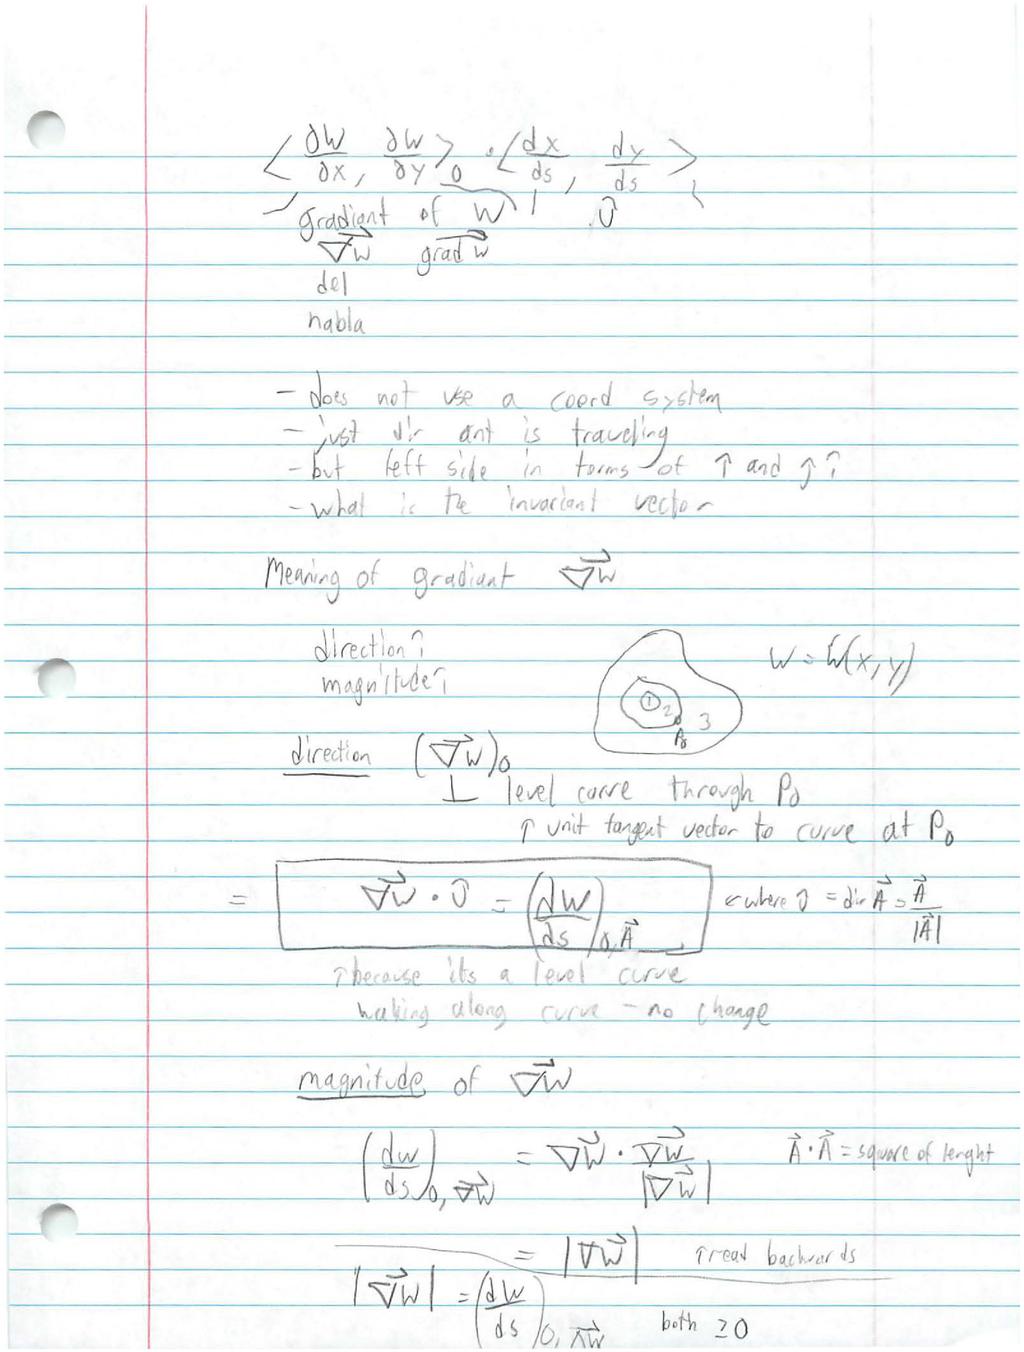 < ∂W/∂x, ∂W/∂y >₀ · < dx/ds, dy/ds >
gradiant of W Û
∇⃗w grad w⃗
del
nabla
- does not use a coord system
- just dir ant is traveling
- but left side in terms of î and ĵ ?
- what is the invariant vector
Meaning of gradiant ∇⃗w
direction?
magnitude?
W = W(x,y)
1 2 3
P₀
direction (∇⃗w)₀
⊥ level curve through P₀
↑ unit tangent vector to curve at P₀
= ∇⃗w · Û = (dW/ds)₀,A⃗ ← where Û = dir A⃗ = A⃗/|A⃗|
↑ because its a level curve
walking along curve - no change
magnitude of ∇⃗w
(dw/ds)₀,∇⃗w = ∇⃗w · ∇⃗w/|∇⃗w| A⃗·A⃗ = square of lenght
= |∇⃗w| ↑ read backwards
|∇⃗w| = (dW/ds)₀,∇⃗w both ≥0